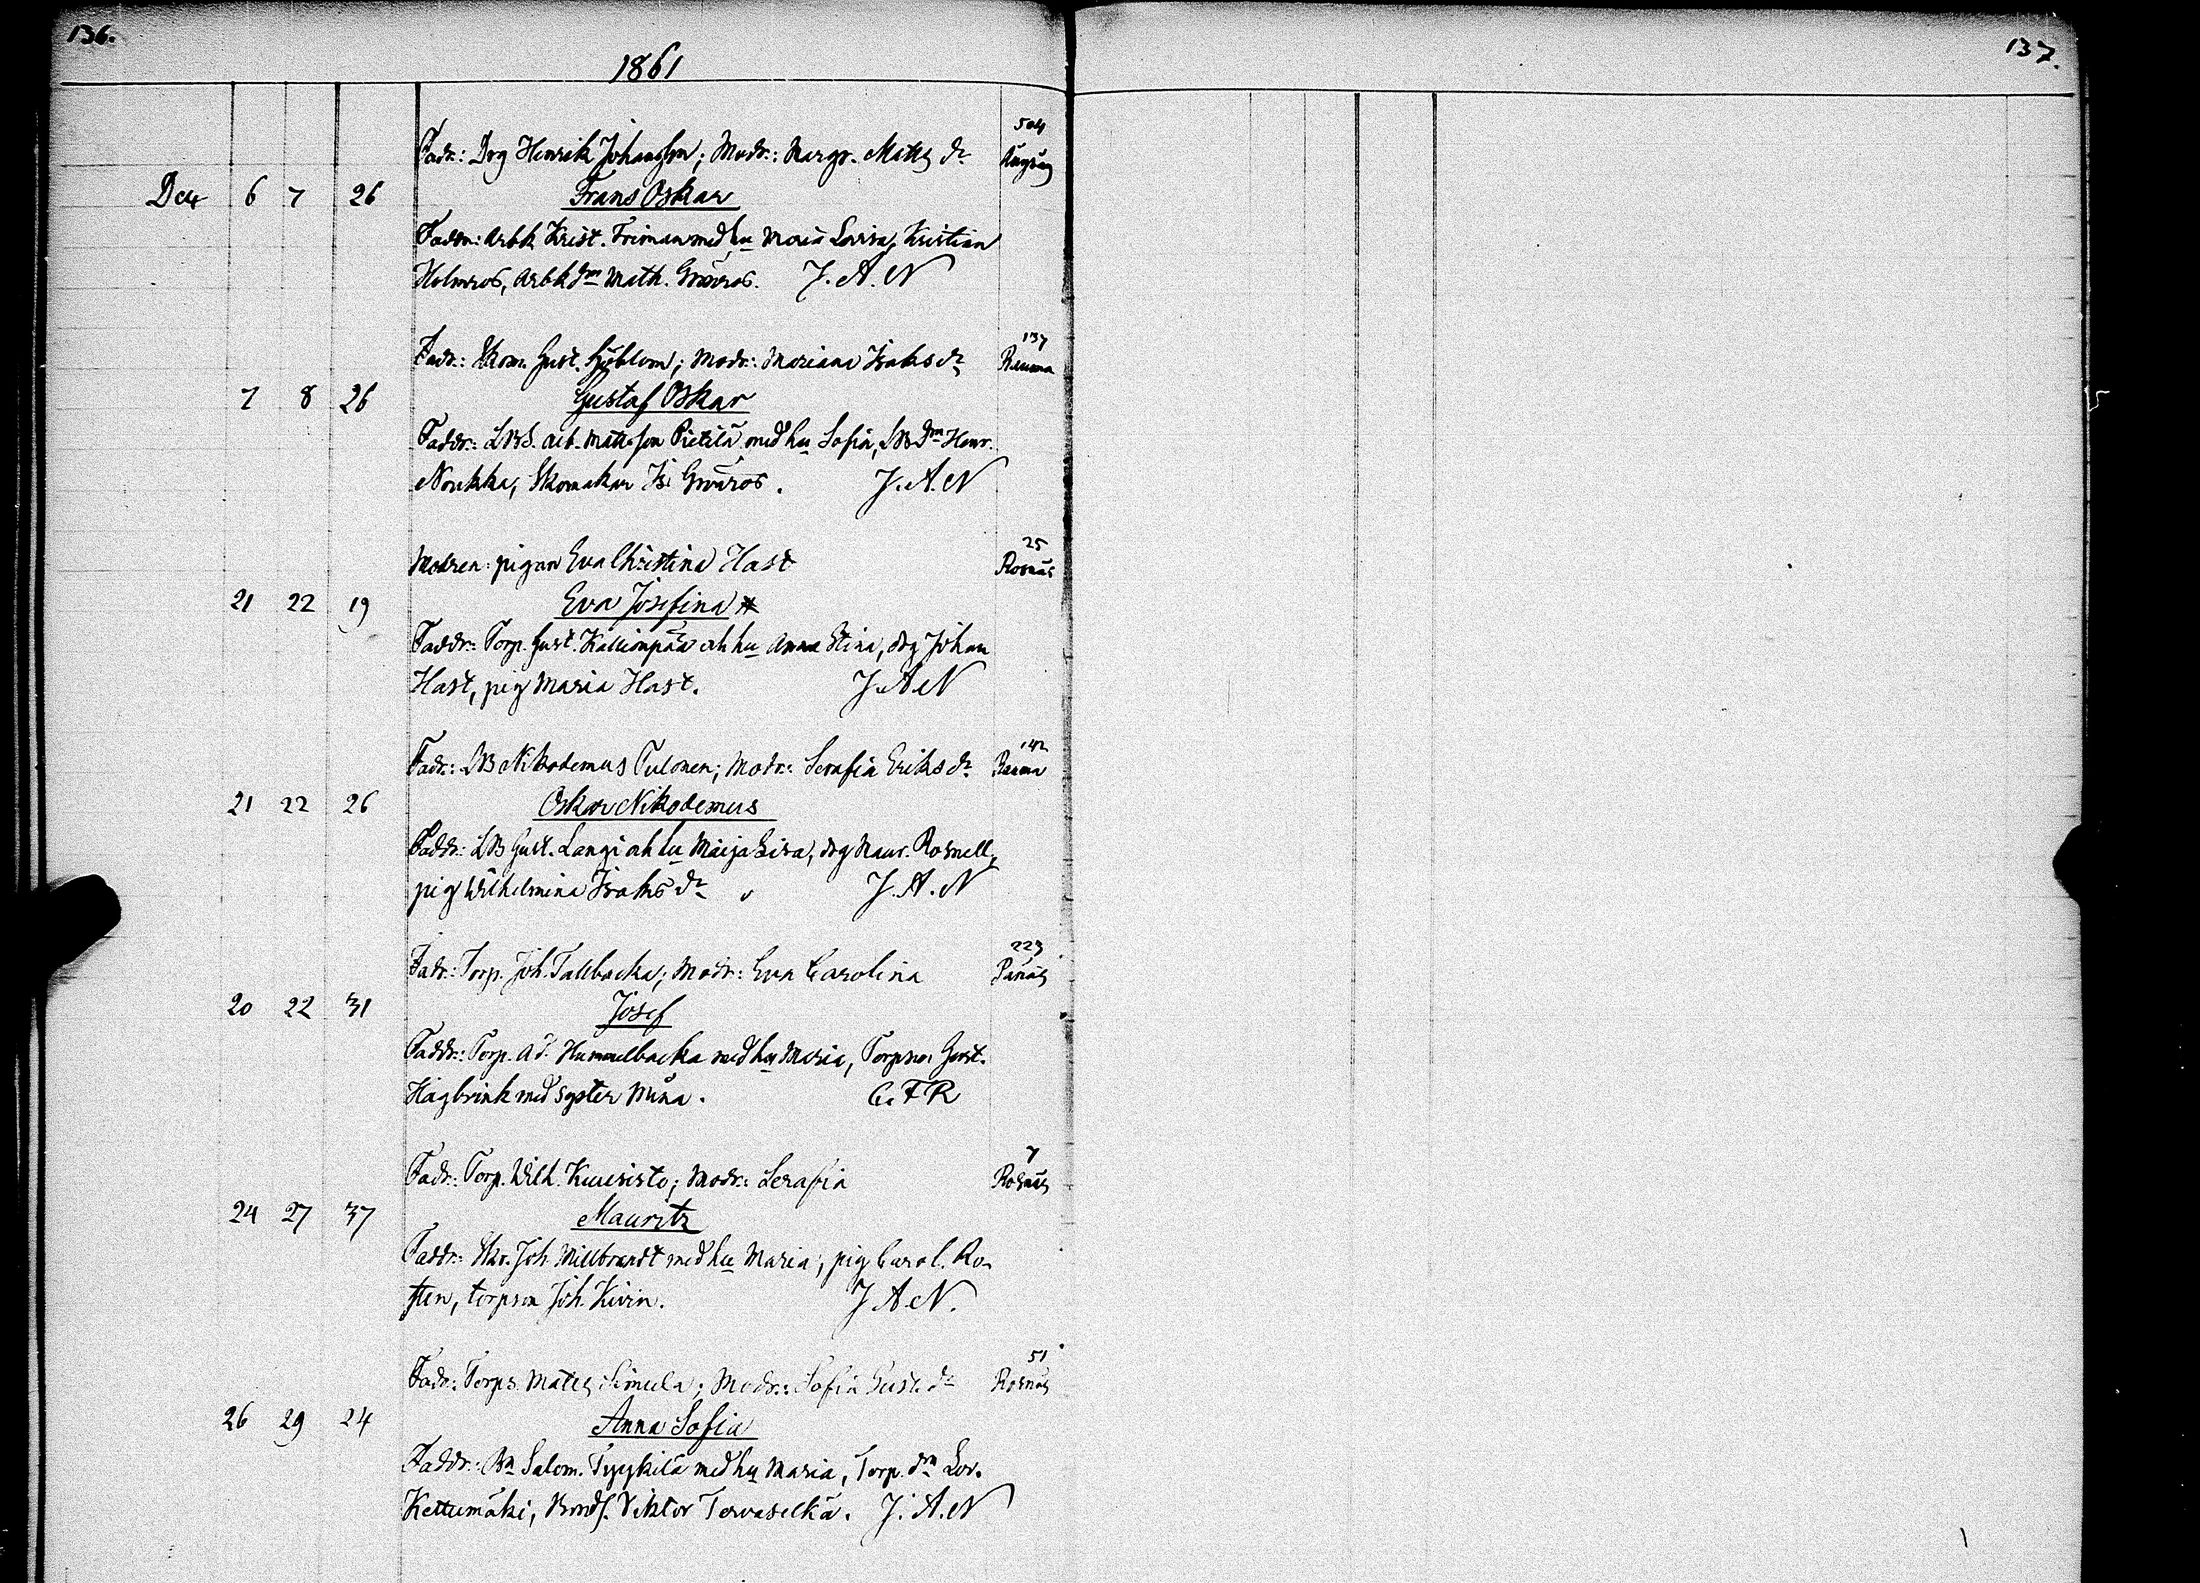 136.
137.
1861
504
Fadr.: Drg Henrik Johansson; Modr.: Margr. Matts dr
Dec 6 7 26 Frans Oskar
Faddr: Arbk Krist. Friman med hu Maria Lovisa, Kristian
Holmros, Arbk dm Math. Gröröos. J. A. N
137
Fadr.: Skom. Gust. Sjöblom; Modr.: Mariana Isaks dr Rauma
7 8 26 Gustaf Oskar
Faddr.: LBS. arb. Matts son Pietilä med hu Sofia, LB dm Henr.
Noukka, Skomakar Is. Gröröos. J. A. N
25
Modren: pigan Eva Christina Hast Rosnäs
21 22 19 Eva Josefina
Faddr: Torp. Gust. Kallionpää ah hu Anna Stina, drg Johan
Hast, pig Maria Hast. J. A. N
142
Fadr.: LB Nikodemus Tulonen; Modr.: Serafia Eriks dr Rauma
21 22 26 Oskar Nikodemus
Faddr.: LB Gust. Langi ah hu Maija Lisa, drg Maur. Rosnell,
pig Wilhelmina Isaks dr J. A. N
223
Fadr.: Torp. Joh. Tallbacka; Modr.: Eva Carolina Panäs
20 22 31 Josef
Faddr.: Torp. Ad. Hummelbacka med hu Maria, Torpson Gust.
Hagbrink med syster Mina. C. F R
7
Fadr.: Torp. Wilh. Kuusisto; Modr.: Serafia Rosnäs
24 27 37 Mauritz
Faddr.: Skr. Joh. Millbrandt med hu Maria, pig Carol. Ro-
sten, torpson Joh. Kivin. J A N.
51
Fadr.: Torps. Matts Simula; Modr.: Sofia Gust. dr Rosnäs
26 29 24 Anna Sofia
Faddr.: Bn Salom. Tyykilä med hu Maria, Torp. dm Lov.
Kettumäki, Bonds. Viktor Tervaselkä. J. A. N